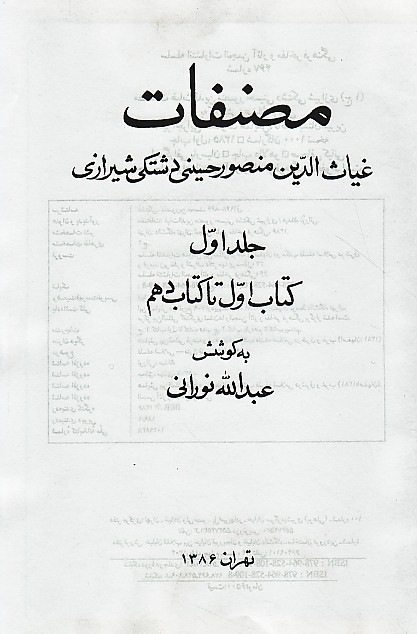 مصنفات
غیاث الدّین منصور حسینی دشتکی شیرازی
جلد اوّل
کتاب اوّل تا کتاب دهم
به کوشش
عبدالله نورانی
تهران ۱۳۸۶